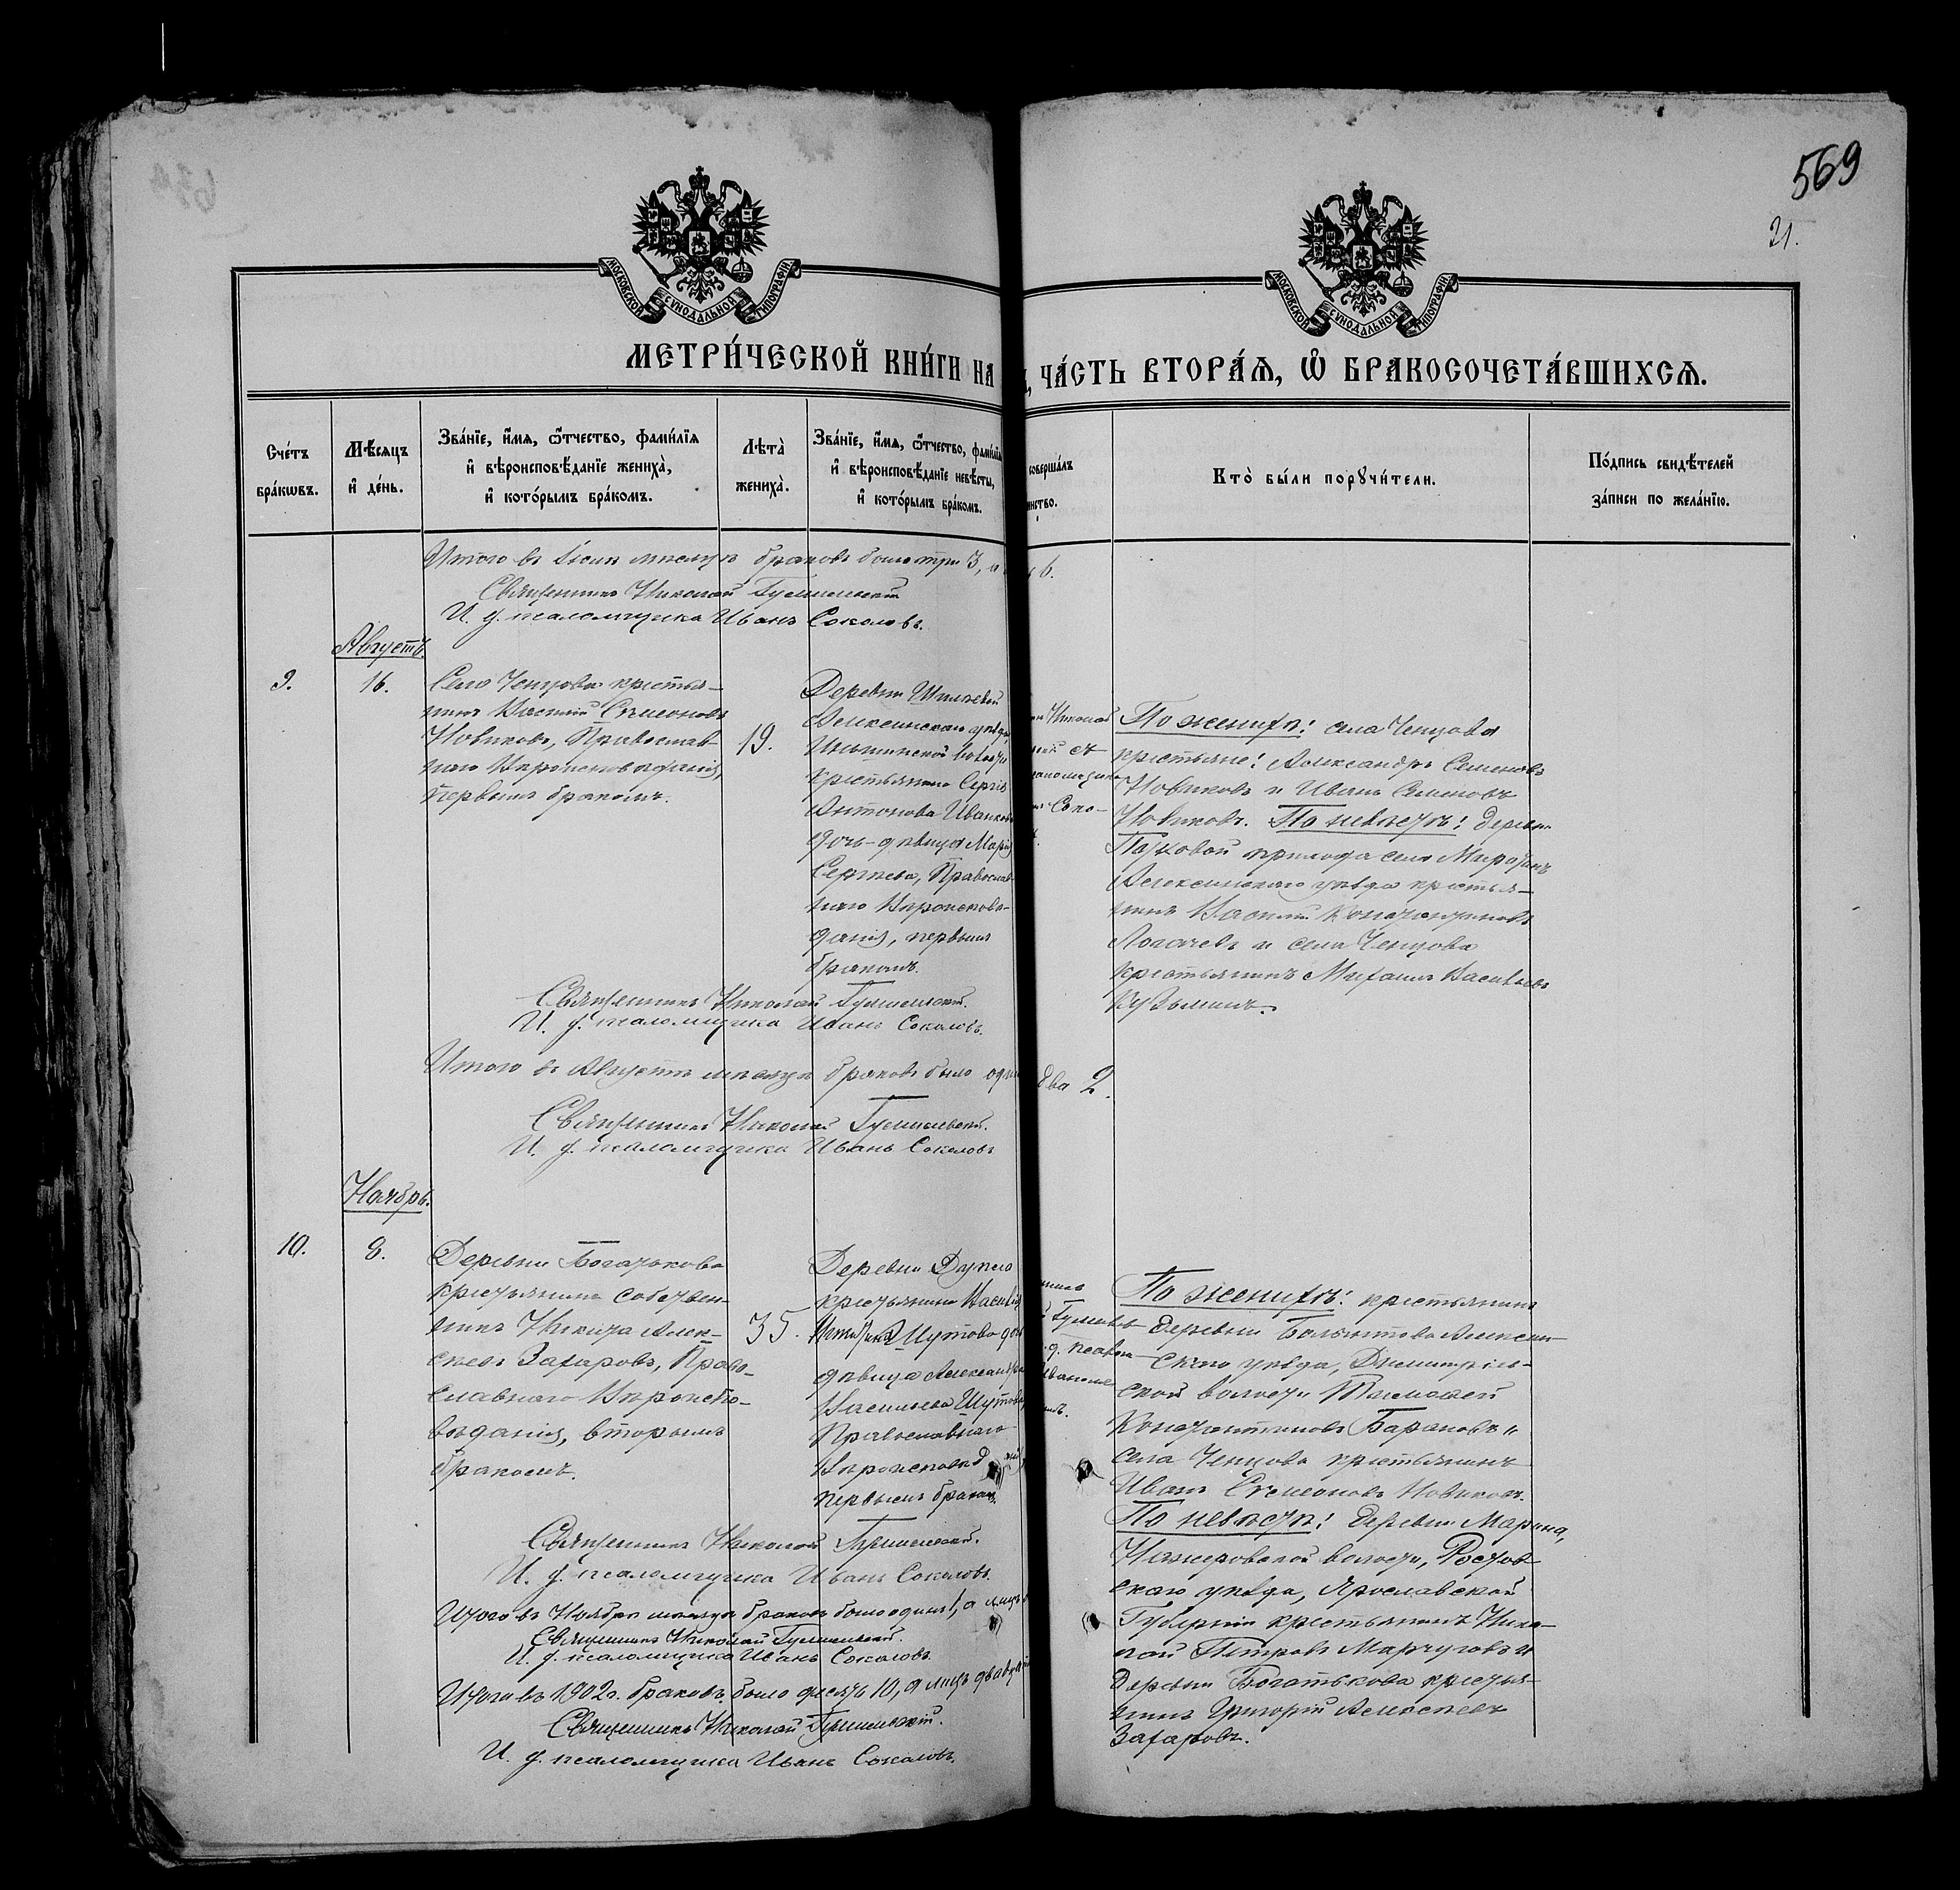 569
21.
МОСКОВСКОЙ СѴНОДАЛЬНОЙ ТИПОГРАФІИ
МОСКОВСКОЙ СѴНОДАЛЬНОЙ ТИПОГРАФІИ
МЕТРИ́ЧЕСКОЙ КНИ́ГИ НА
ЧА́СТЬ ВТОРА́Я, Ѽ БРАКОСОЧЕТА́ВШИХСЯ.
Сче́тъ бра́кѡвъ.
Мѣ́сяцъ и҆ де́нь.
Зва́нїе, и҆́мя, ѻ҆́тчество, фами́лїя
и҆ вѣроисповѣ́данїе жениха̀,
и҆ кото́рымъ бра́комъ.
Лѣта̀ жениха̀.
Зва́нїе, и҆́мя, ѻ҆́тчество, фами́лїя
и҆ вѣроисповѣ́данїе невѣ́сты,
и҆ кото́рымъ бра́комъ.
соверша́лъ
Кто̀ бы́ли порꙋчи́тели.
По́дпись свидѣ́телей
за́писи по жела́нїю.
Итого въ Іюлѣ мѣсяцѣ браковъ было три 3, а
6.
Священникъ Николай
И. д. псаломщика Иванъ Соколовъ.
Августъ.
9.
16.
Село Ченцова крестья-
нинъ Василій Сѵмеоновъ
Новиковъ, Православ-
наго Вѣроисповѣданія,
первымъ бракомъ.
19.
Деревни
Алексинскаго уѣзда,
волости
крестьянина Сергія
Антонова
дочь-дѣвица Марія
Сергѣева, Православ-
наго Вѣроисповѣ-
данія, первымъ
бракомъ.
Николай
Соко-
По женихѣ: села Ченцова
крестьяне: Александръ Семеновъ
Новиковъ и Иванъ Семеновъ
Новиковъ. По невѣстѣ: деревни
прихода село
Алексинскаго уѣзда крестья-
нинъ Василій Константиновъ
и села Ченцова
крестьянинъ Михаилъ Васильевъ
Кузьминъ.
Священникъ Николай
И. д. псаломщика Иванъ Соколовъ.
Итого въ Августѣ мѣсяцѣ браковъ было
два 2.
Священникъ Николай
И. д. псаломщика Иванъ Соколовъ
Ноябрь.
10.
8.
Деревни Богатькова
крестьянинъ собствен-
никъ Никита Алек-
сѣевъ Захаровъ, Право-
славнаго Вѣроиспо-
вѣданія, вторымъ
бракомъ.
35.
Деревни
крестьянина Василія
Шутова дочь
дѣвица Александра
Васильева Шутова
Православнаго
первымъ бракомъ.
По женихѣ: крестьянинъ
деревни Алексин-
скаго уѣзда,
ской волости Тимофей
Константиновъ Барановъ и
села Ченцова крестьянинъ
Иванъ Сѵмеоновъ Новиковъ.
По невѣстѣ: деревни
волости, Ростов-
скаго уѣзда, Ярославской
Губерніи крестьянинъ Нико-
лай Петровъ и
деревни Богатькова крестья-
нинъ Григорій Алексѣевъ
Захаровъ.
Священникъ Николай
И. д. псаломщика Иванъ Соколовъ.
Итого въ Ноябрѣ мѣсяцѣ браковъ было одинъ 1, а лицъ
Священникъ Николай
И. д. псаломщика Иванъ Соколовъ.
Итого въ 1902 г. браковъ было десять 10, а лицъ
Священникъ Николай
И. д. псаломщика Иванъ Соколовъ.